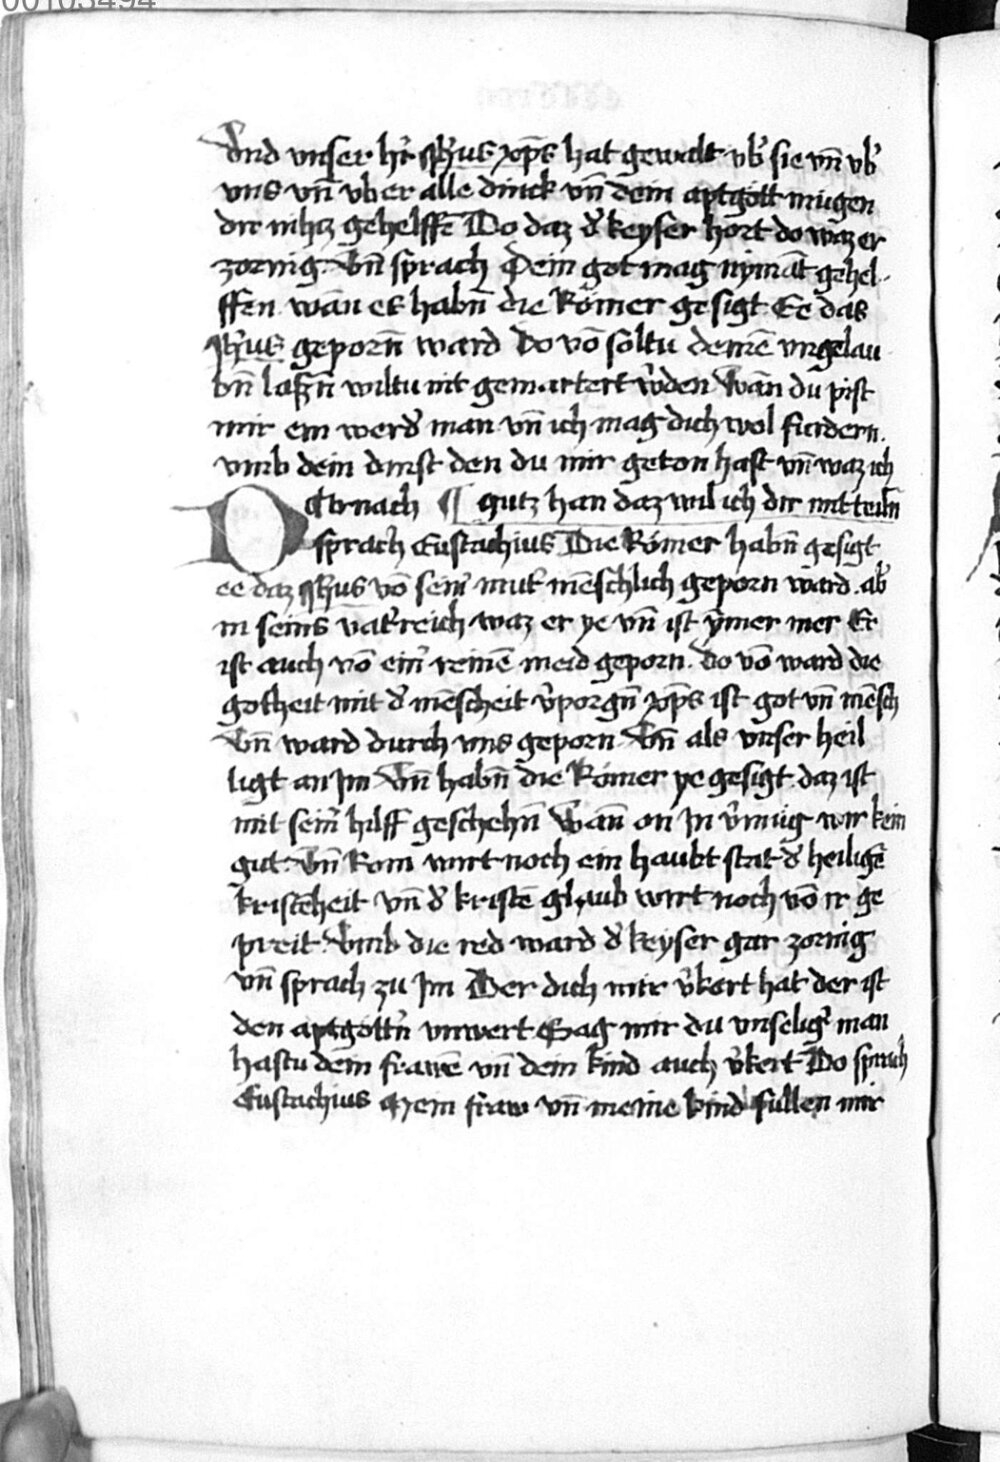 00103494
Vnd vnser hr̄ Jh̄us xp̄s hat gewalt vb̄ sie vn̄ vb̄
vns vn̄ vber alle dinck vn̄ dein aptgött mügen
dir nihcz gehelffē Do daz d̄ keyser hort do waz er
zornig. Vn̄ sprach Dein got mag nymāt gehel-
ffen wan es habn̄ die Römer gesigt Ee das
Jh̄us geporn̄ ward Do vō soltu deinē vngelau
bn̄ laßn̄ wiltu nit gemartert w̄den Wan du pist
mir ein werd̄ man vn̄ ich mag dich wol furdern.
vmb dein dinst den du mir geton hast vn̄ waz ich
Dernach ¶ gutz han daz wil ich dir mitteiln̄
sprach Eustachius Die Römer habn̄ gesigt
ee daz Jh̄us vō sein̄ mut̄ mēschlich geporn ward. ab̄
in seins vat̄ reich waz er ye vn̄ ist ym̄er mer Er
ist auch vō ein̄ reinē meid geporn. Do vō ward die
gotheit mit d̄ mēscheit v̄porgn̄ xp̄s ist got vn̄ mēsch
Vn̄ ward durch vns geporn Vn̄ als vnser heil
ligt an Jm Vn̄ habn̄ die Römer ye gesigt. daz ist
mit sein̄ hilff geschehn̄ Wan̄ on Jn v̄müg wir kein
gut. Vn̄ Rom wirt noch ein haubt stat d̄ heiligē
kristēheit vn̄ d̄ kristē glaub wirt noch vō ir ge
preit Vmb die red ward d̄ keyser gar zornig
vn̄ sprach zu Jm Der dich mir v̄kert hat der ist
den aptgöttn̄ vnwert Sag mir du vnseliḡ man
hastu dein frawē vn̄ dein kind auch v̄kert Do sprach
Eustachius Mein fraw vn̄ meine kind süllen mir